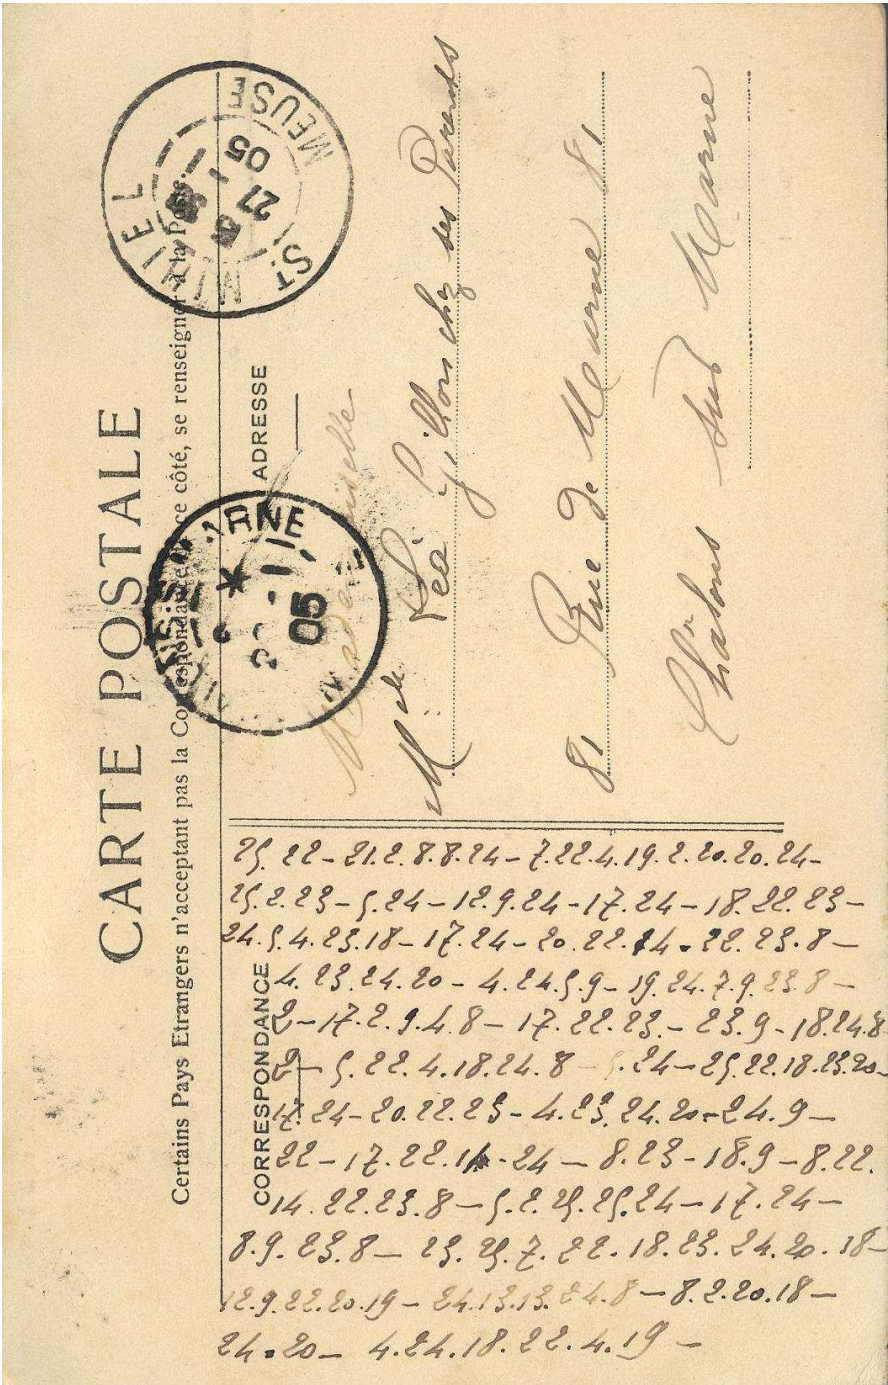 CARTE POSTALE
Certains Pays Etrangers n'acceptant pas la Correspondance de ce côté, se renseigner à la Poste.
ST MIHIEL
MEUSE
27 - 1
05
MARNE
05
ADRESSE
Mademoiselle
Mlle Léa Gillons chez ses Parents
81 Rue de Marne 81
Chalons sur Marne
CORRESPONDANCE
25.22-21.2.8.8.24-7.22.4.19.2.20.20.24-
25.2.23-5.24-12.9.24-17.24-18.22.23-
24.5.4.23.18-17.24-20.22.14.22.23.8-
4.23.24.20-4.24.5.9-19.24.7.9.23.8-
2-17.2.9.4.8-17.22.23.-23.9-18.24.8-
2-5.22.4.18.24.8-5.24-25.22.18.23.20-
17.24-20.22.23-4.23.24.20-24.9-
22-17.22.14-24-8.23-18.9-8.22.
14.22.23.8-5.2.25.25.24-17.24-
8.9.23.8-23.25.7.22.18.23.24.20.18-
12.9.22.20.19-24.13.13.24.8-8.2.20.18-
24.20-4.24.18.22.4.19-